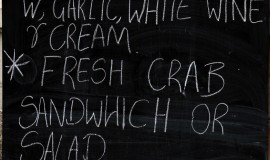 W, GARLIC, WHITE WINE
& CREAM.
* FRESH CRAB
SANDWHICH OR
SALAD